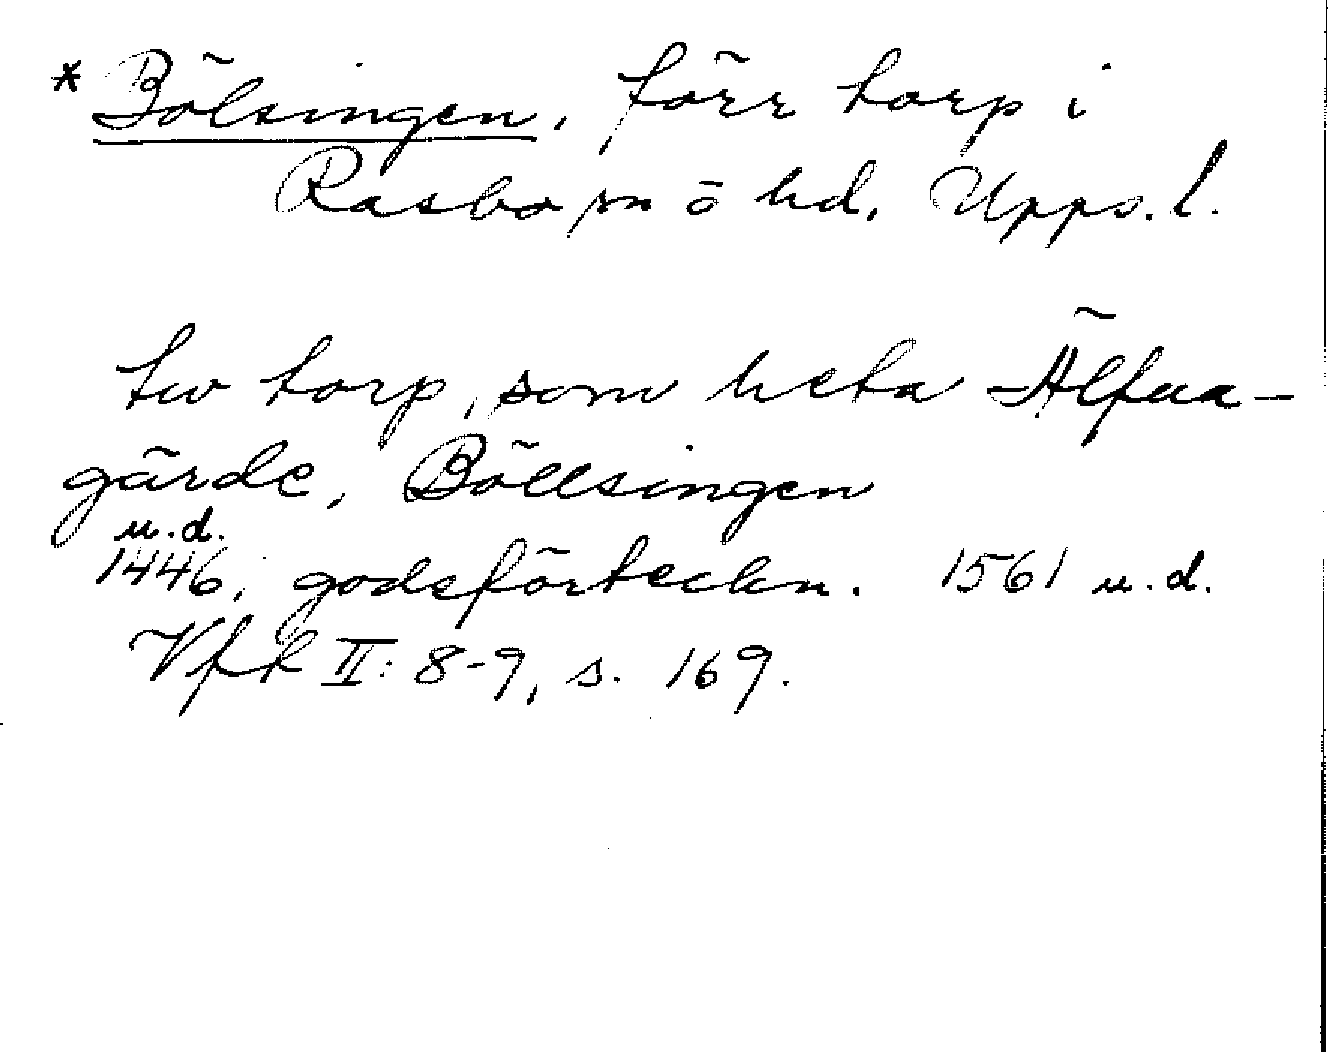 * Bölsingen, förr torp i
Rasbo sn o hd. Upps. l.
tw torp, som heta Älfua-
gärde, Böllsingen
u.d.
1446, godsförteckn. 1561 u.d.
Vfr II: 8-9, s. 169.